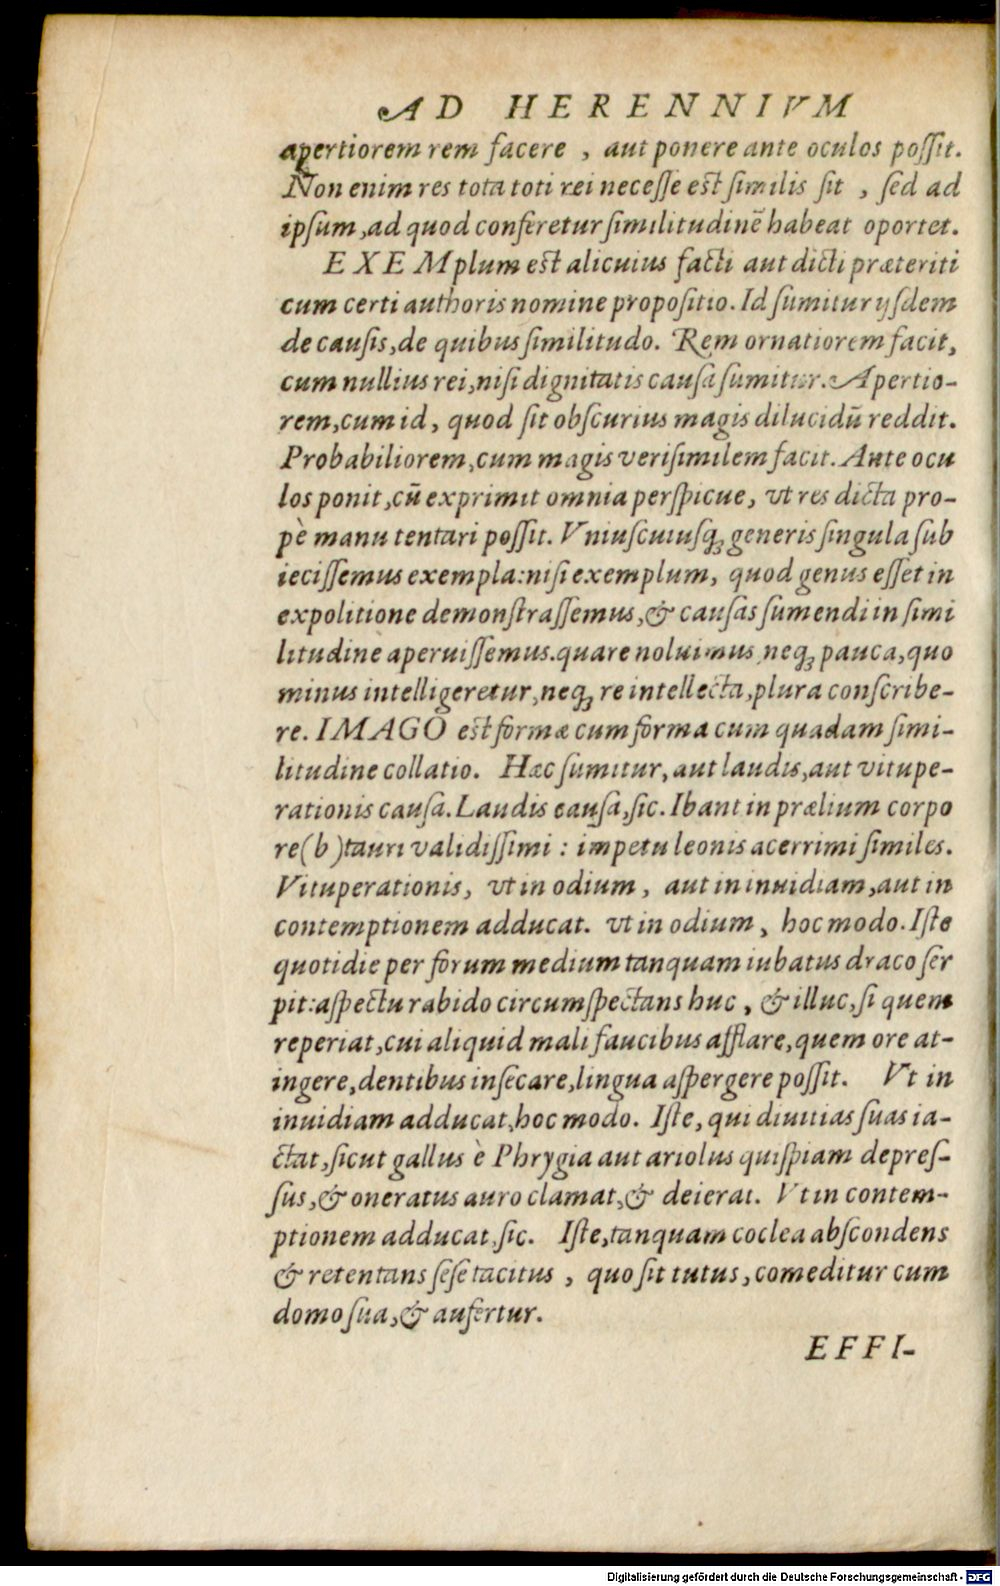 AD HERENNIVM
apertiorem rem facere , aut ponere ante oculos poſſit.
Non enim res tota toti rei neceſſe est ſimilis ſit , ſed ad
ipſum, ad quod conferetur ſimilitudinē habeat oportet.
EXEMplum est alicuius facti aut dicti præteriti
cum certi authoris nomine propoſitio. Id ſumitur ijſdem
de cauſis, de quibus ſimilitudo. Rem ornatiorem facit,
cum nullius rei, niſi dignitatis cauſa ſumitur. Apertio-
rem, cum id, quod ſit obſcurius magis dilucidū reddit.
Probabiliorem, cum magis veriſimilem facit. Ante ocu
los ponit, cū exprimit omnia perſpicue, vt res dicta pro-
pè manu tentari poſſit. Vniuſcuiuſq; generis ſingula ſub
ieciſſemus exempla: niſi exemplum, quod genus eſſet in
expolitione demonſtraſſemus, & cauſas ſumendi in ſimi
litudine aperuiſſemus. quare noluimus neq; pauca, quo
minus intelligeretur, neq; re intellecta, plura conſcribe-
re. IMAGO est formæ cum forma cum quadam ſimi-
litudine collatio. Hæc ſumitur, aut laudis, aut vitupe-
rationis cauſa. Laudis cauſa, ſic. Ibant in prælium corpo
re (b) tauri validiſſimi : impetu leonis acerrimi ſimiles.
Vituperationis, vt in odium, aut in inuidiam, aut in
contemptionem adducat. vt in odium, hoc modo. Iſte
quotidie per forum medium tanquam iubatus draco ſer
pit: aſpectu rabido circumſpectans huc, & illuc, ſi quem
reperiat, cui aliquid mali faucibus afflare, quem ore at-
ingere, dentibus inſecare, lingua aſpergere poſſit. Vt in
inuidiam adducat, hoc modo. Iſte, qui diuitias ſuas ia-
ctat, ſicut gallus è Phrygia aut ariolus quiſpiam depreſ-
ſus, & oneratus auro clamat, & deierat. Vt in contem-
ptionem adducat, ſic. Iſte, tanquam coclea abſcondens
& retentans ſeſe tacitus , quo ſit tutus, comeditur cum
domo ſua, & aufertur.
EFFI-
Digitalisierung gefördert durch die Deutsche Forschungsgemeinschaft - DFG